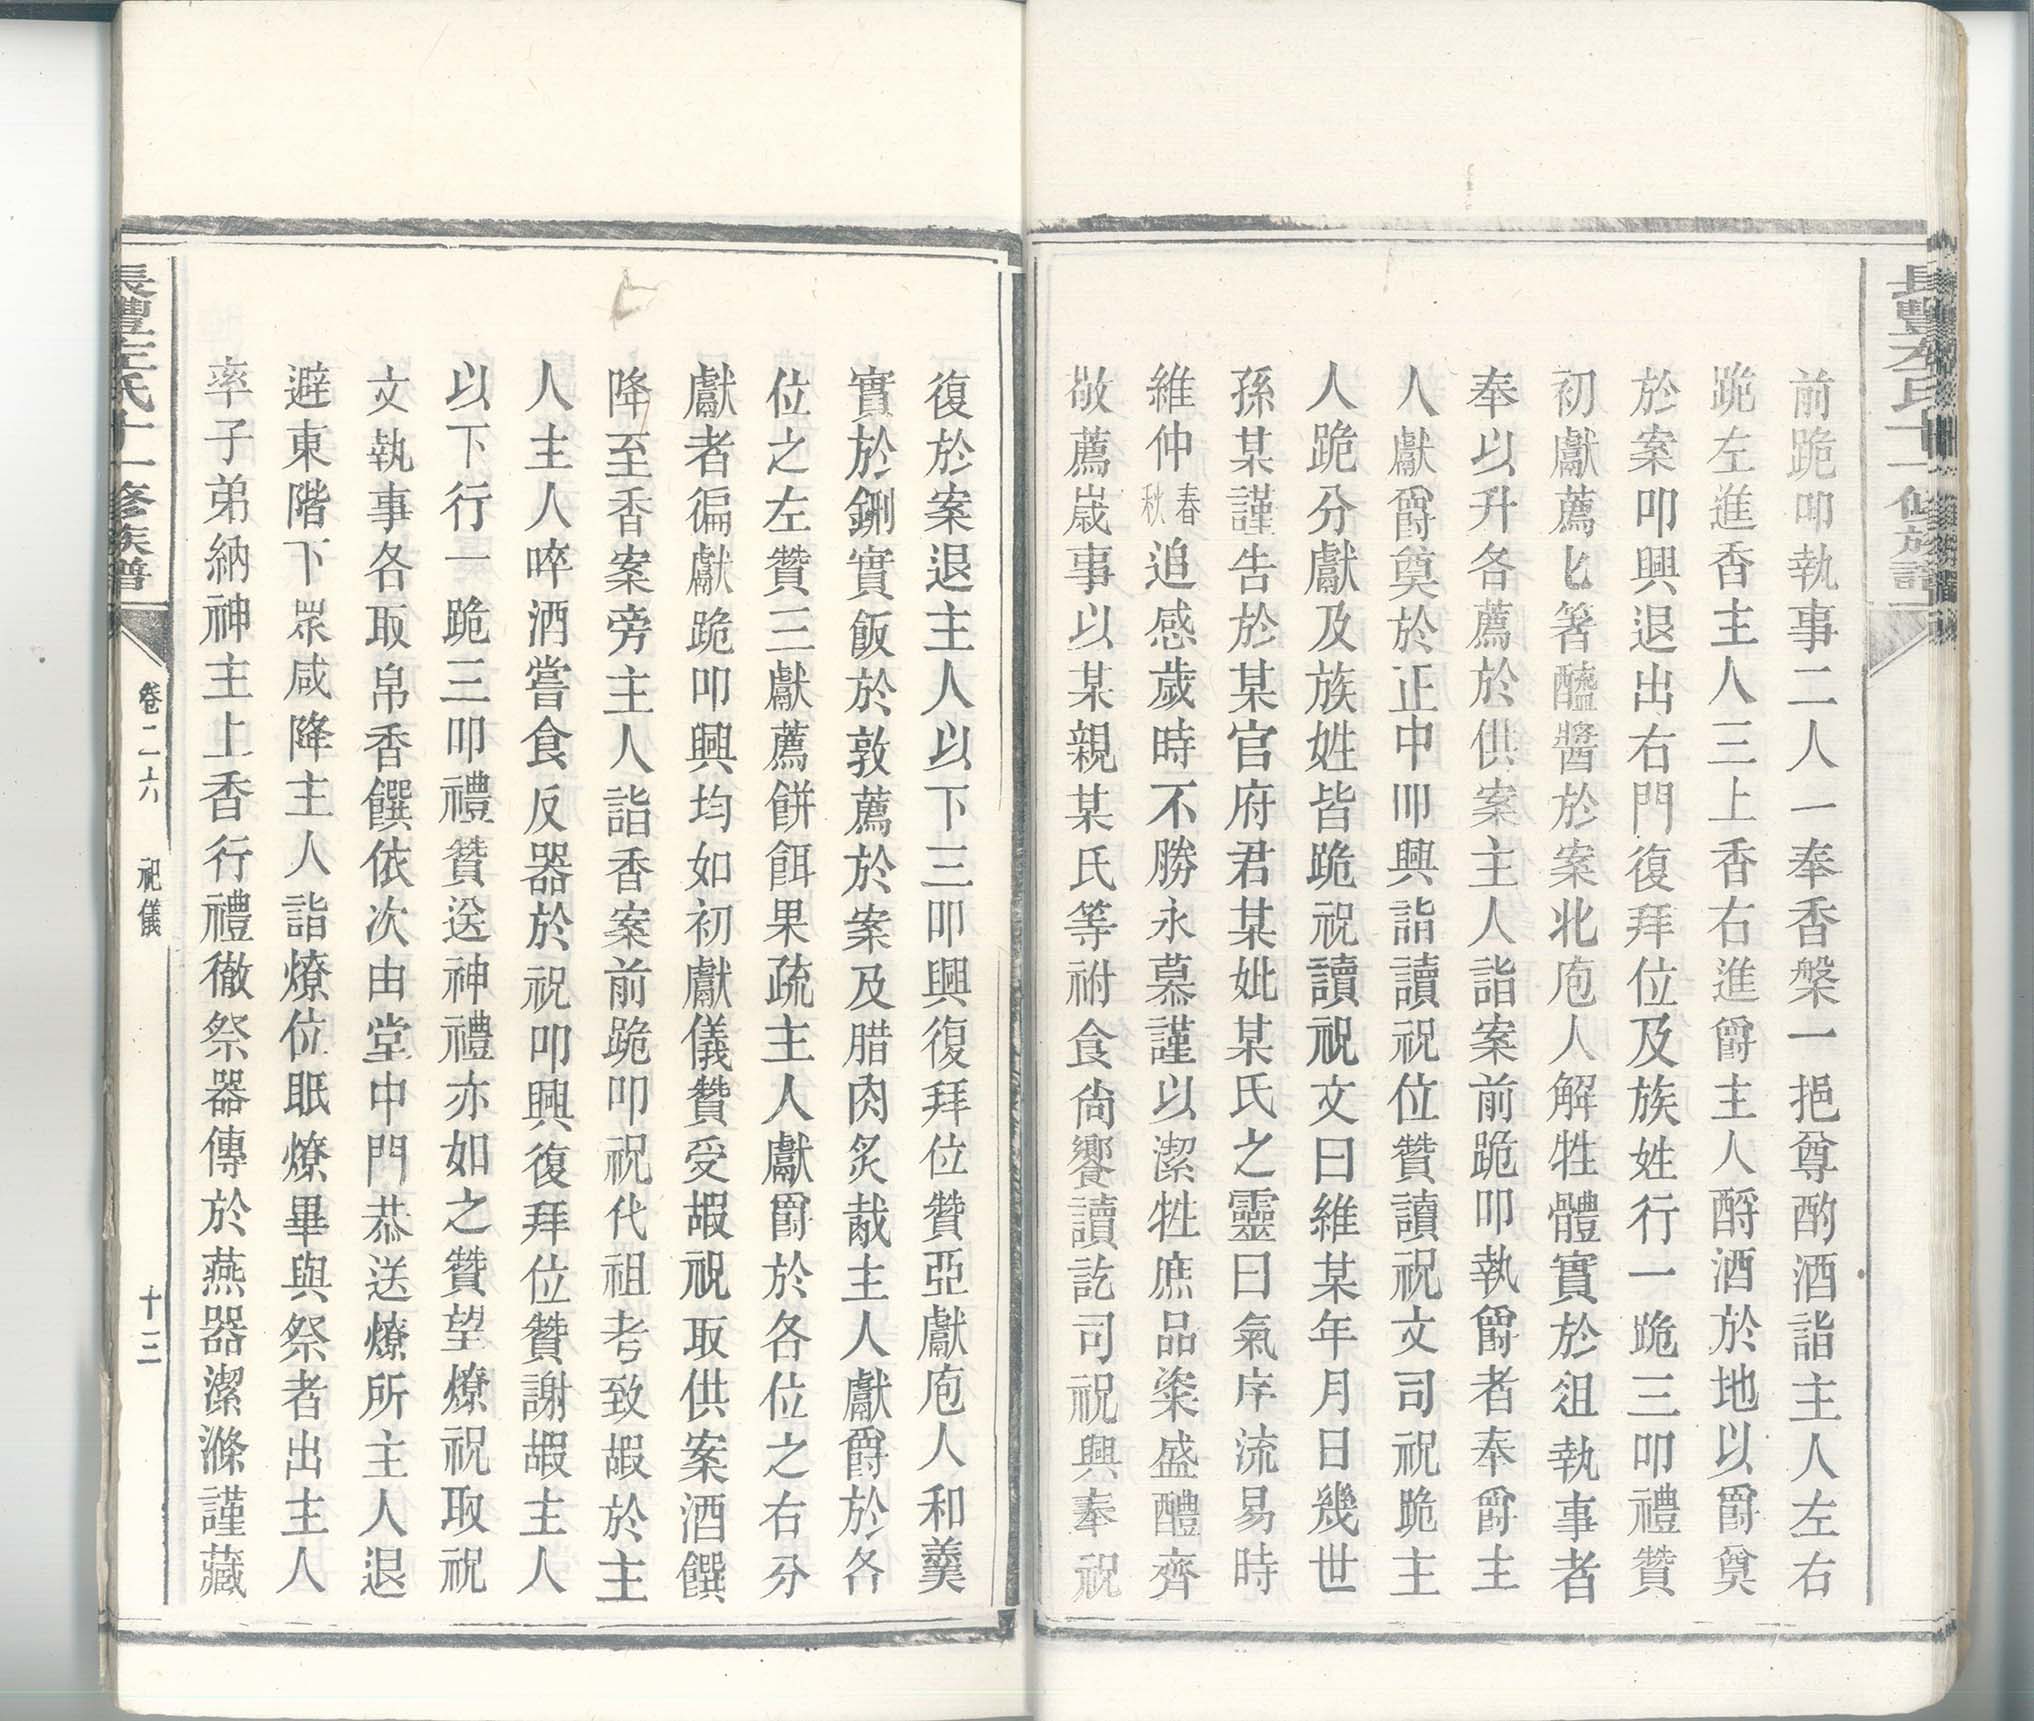 前跪叩執事二人一奉香槃一挹尊酌酒詣主人左右
跪左進香主人三上香右進爵主人酹酒於地以爵奠
於案叩興退出右門復拜位及族姓行一跪三叩禮贊
初獻薦匕箸醯醬於案北庖人解牲體實於俎執事者
奉以升各薦於供案主人詣案前跪叩執爵者奉爵主
人獻爵奠於正中叩興詣讀祝位贊讀祝文司祝跪主
人跪分獻及族姓皆跪祝讀祝文曰維某年月日幾世
孫某謹告於某官府君某妣某氏之靈曰氣序流易時
維仲春秋追感歲時不勝永慕謹以潔牲庶品粢盛醴齊
敬薦歲事以某親某氏等祔食尚饗讀訖司祝興奉祝
長豐左氏十一修族譜
復於案退主人以下三叩興復拜位贊亞獻庖人和羹
實於鉶實飯於敦薦於案及腊肉炙胾主人獻爵於各
位之左贊三獻薦餅餌果疏主人獻爵於各位之右分
獻者徧獻跪叩興均如初獻儀贊受嘏祝取供案酒饌
降至香案旁主人詣香案前跪叩祝代祖考致嘏於主
人主人啐酒嘗食反器於祝叩興復拜位贊謝嘏主人
以下行一跪三叩禮贊送神禮亦如之贊望燎祝取祝
文執事各取帛香饌依次由堂中門恭送燎所主人退
避東階下眾咸降主人詣燎位眂燎畢與祭者出主人
率子弟納神主上香行禮徹祭器傳於燕器潔滌謹藏
長豐左氏十一修族譜
卷二六 祀儀 十三